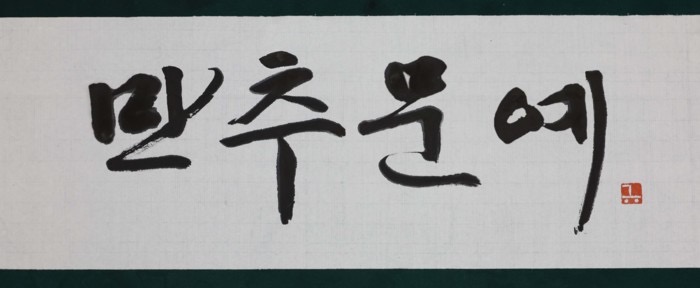 만추문예